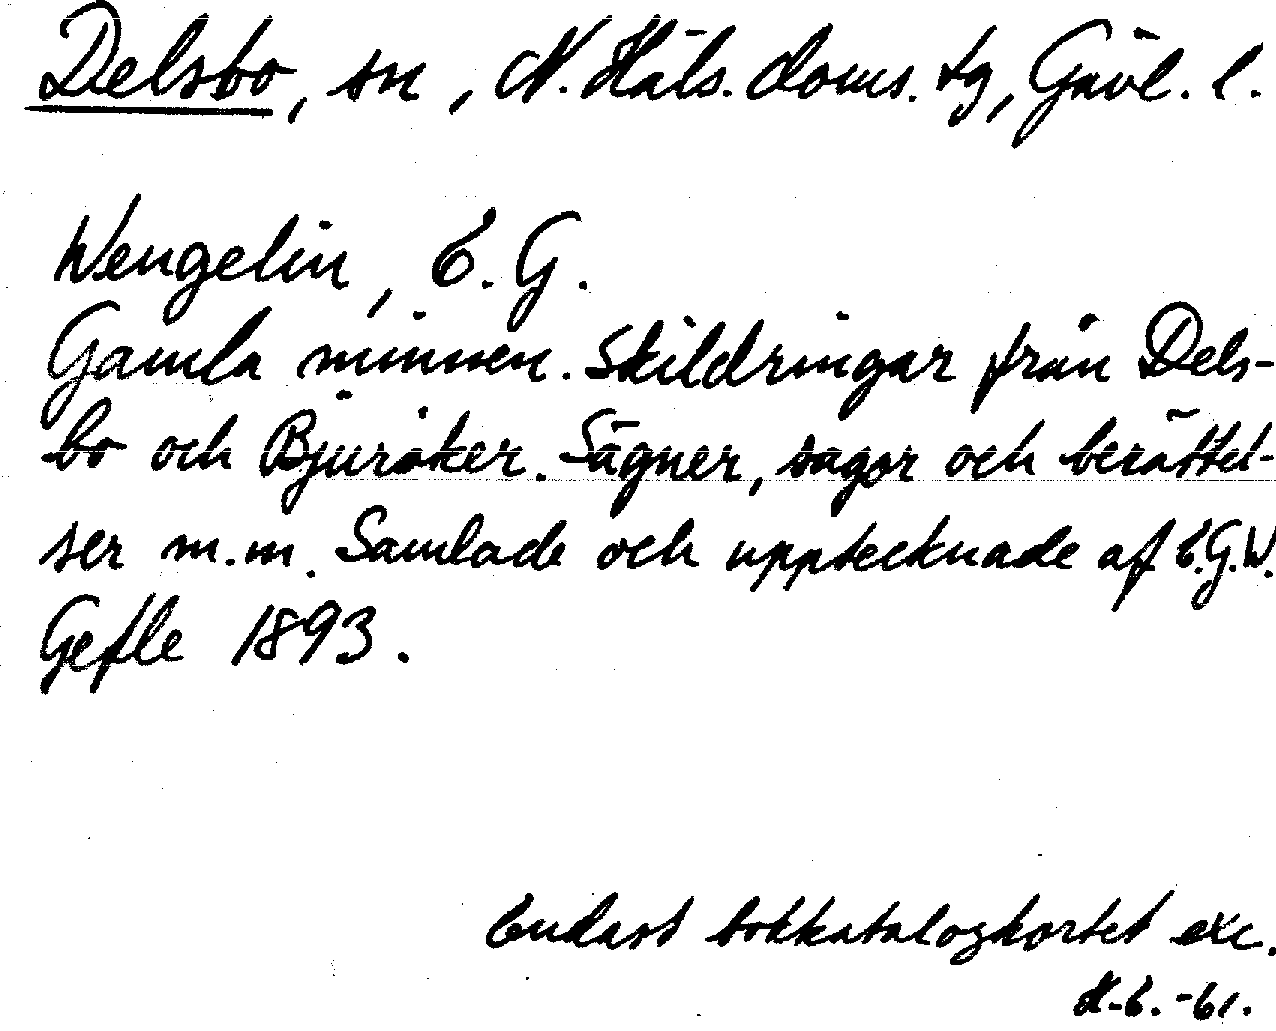 Delsbo, sn, N. Häls. doms. tg, Gävl. l.
Wengelin, E. G.
Gamla minnen. Skildringar från Dels-
bo och Bjuråker. Sägner, sagor och berättel-
ser m.m. Samlade och upptecknade af E.G.W.
Gefle 1893.
Endast bokkatalogkortet exc.
H.E. -61.